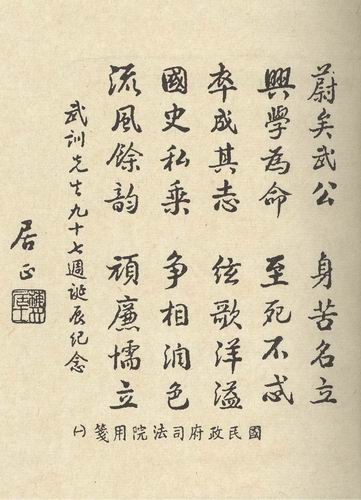 蔚矣武公　身苦名立
興學為命　至死不忒
卒成其志　絃歌洋溢
國史私乘　争相润色
流風餘韵　頑廉懦立
武训先生九十七週誕辰纪念
居正
國民政府司法院用箋㈠